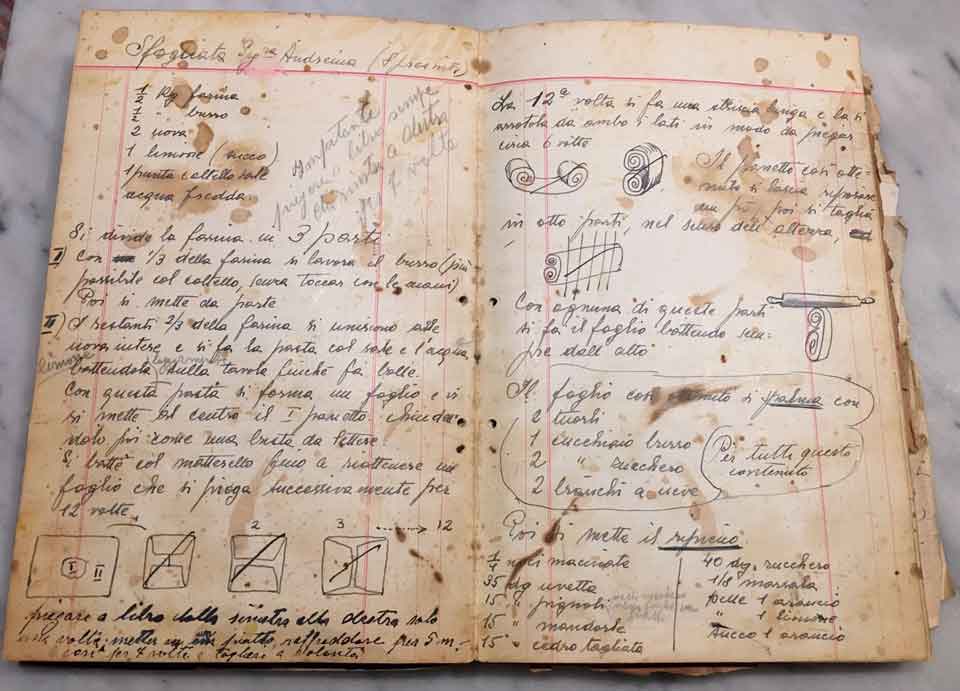 Sfogliata Andreina
1/2 Kg farina
1/2 " burro
2 uova
1 limone (succo)
1 punta coltello sale
acqua fredda.
piegare a libro sempre
a destra
7 volte
Si divide la farina in 3 parti
I) Con 1/3 della farina si lavora il burro (più
possibile col coltello, senza toccar con le mani)
Poi si mette da parte
II) I restanti 2/3 della farina si uniscono alle
uova intere e si fa la pasta col sale e l'acqua
limone
battendola sulla tavola finchè fa bolle.
Con questa pasta si forma un foglio e vi
si mette al centro il I panetto chiuden-
dolo poi come una busta da lettere.
Si batte col matterello fino a riottenere un
foglio che si piega successivamente per
12 volte.
2 3 12
I II
piegare a libro dalla sinistra alla destra solo
una volta, metter in un piatto raffreddare per 5 m.-
così per 7 volte e tagliare a volontà
La 12a volta si fa una striscia lunga e la si
arrotola da ambo i lati in modo da piegar
circa 6 volte
Il panetto così otte-
nuto si lascia riposare
un po', poi si taglia
in otto parti, nel senso dell'altezza,
Con ognuna di queste parti
si fa il foglio battendo sem-
pre dall'alto
Il foglio così ottenuto si spalma con
2 tuorli
1 cucchiaio burro
2 " zucchero
2 bianchi a neve
Per tutti questo
contenuto
Poi si mette il ripieno.
1/4 noci macinate
35 dg uvetta
15 " pignoli
15 " mandorle
15 " cedro tagliato
40 dg. zucchero
1/8 marsala
Pelle 1 arancio
" 1 limone
Succo 1 arancio